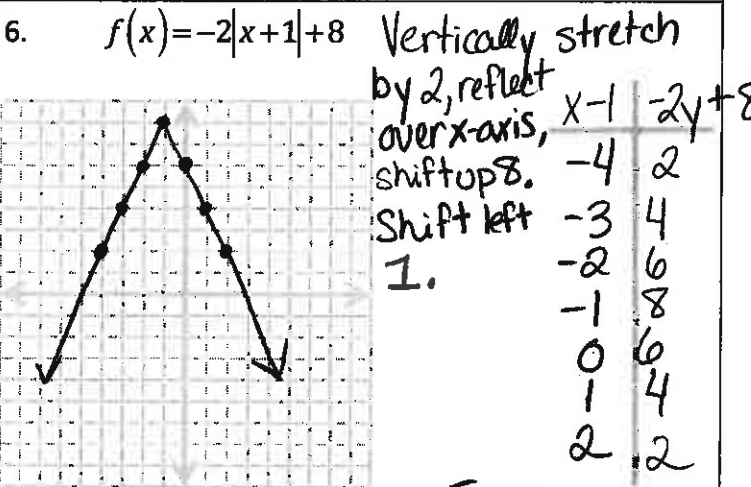 6. f(x)=-2|x+1|+8
Vertically stretch
by 2, reflect
over x-axis,
shift up 8.
Shift left
1.
x-1 -2y+8
-4 2
-3 4
-2 6
-1 8
0 6
1 4
2 2